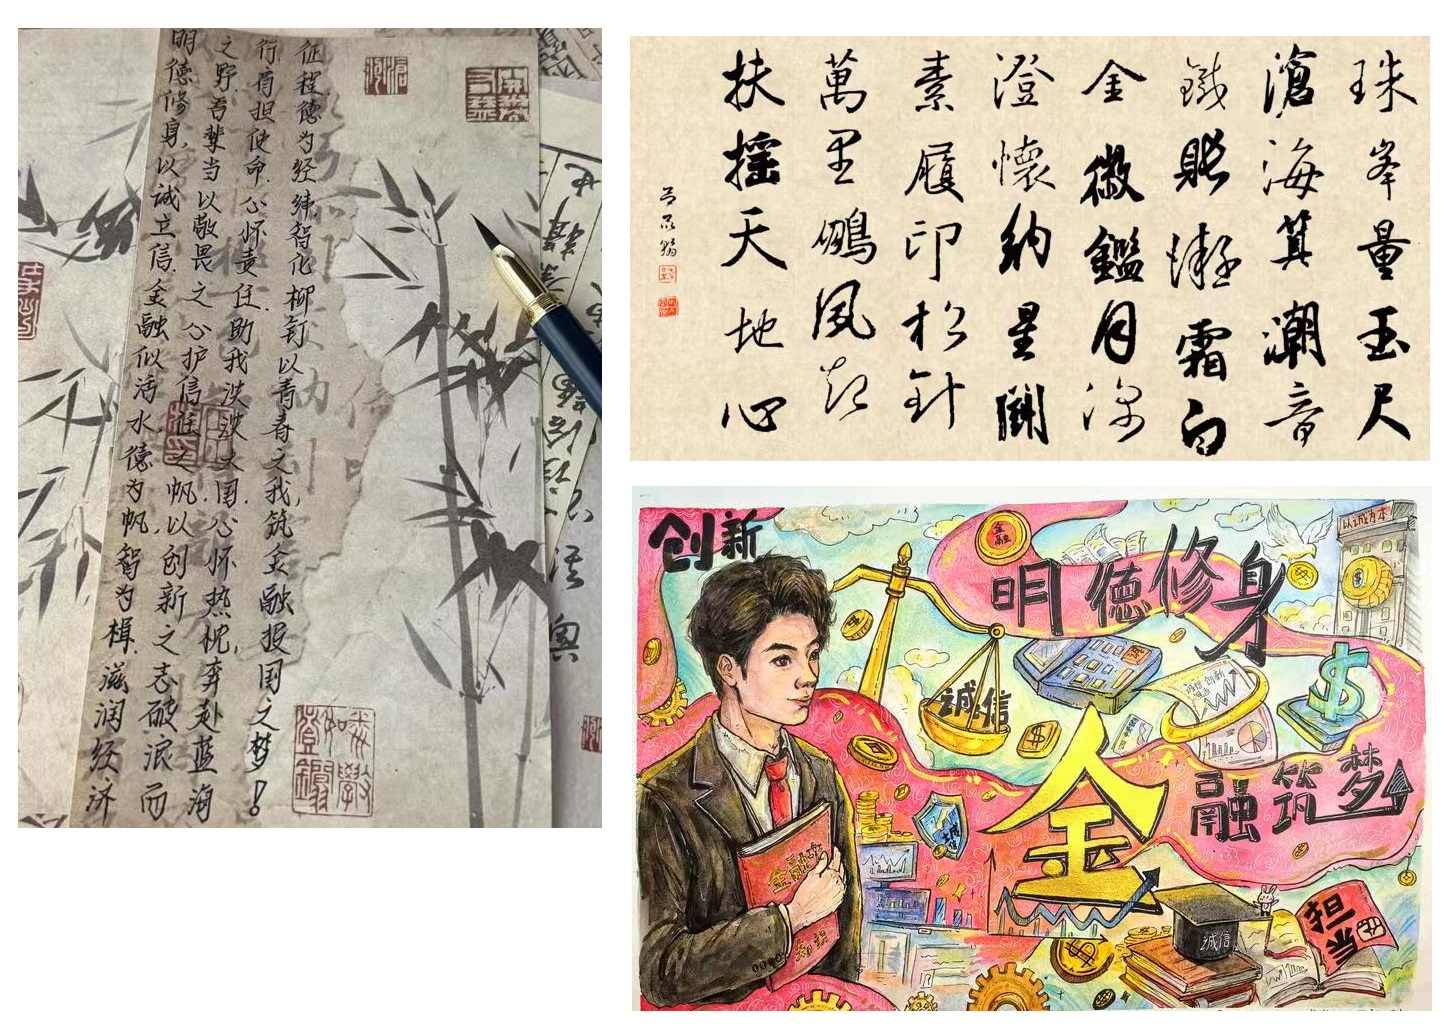 明德修身,以诚立信.金融似活水德为帆智为楫.滋润经济
之野吾辈当以敬畏之心护信任之帆.以创新之志破浪而
行肩担使命.心怀责任助我泱泱大国.心怀热忱,奔赴蓝海
征程德为经纬智化柳钉以青春之我,筑金融报国之梦!
珠峯量玉尺
滄海箕潮音
鐵賬凝霜白
金徽鑑月深
澄懷納星闕
素履印松針
萬里鵬風起
扶摇天地心
创新
金融
以诚为本
明德修身
诚信
诚信 创新
金融筑梦
诚信
金融
知识
诚信
担当